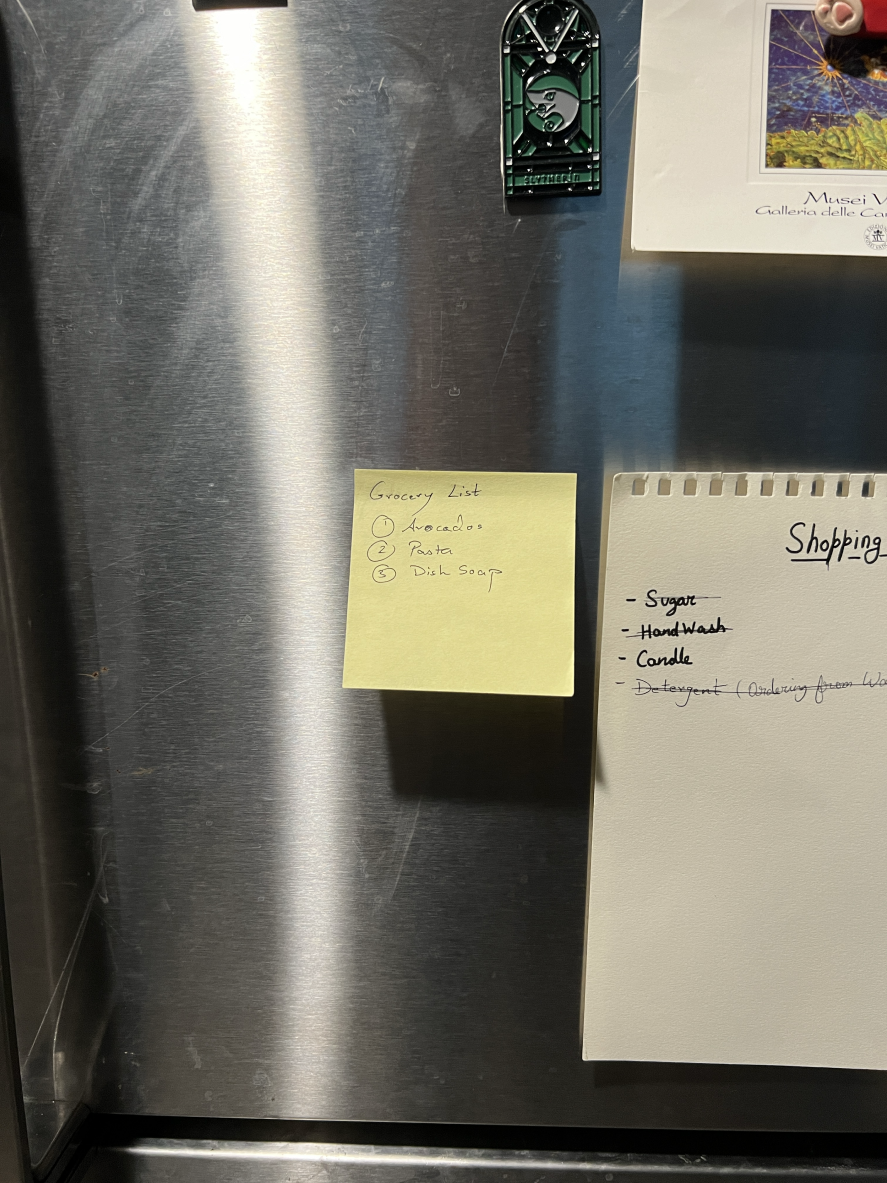 SLYTHERIN
Musei V
Galleria delle Ca
Grocery List
1 Avocados
2 Pasta
3 Dish Soap
Shopping
- Sugar
- Hand Wash
- Candle
- Detergent (Ordering from Wa